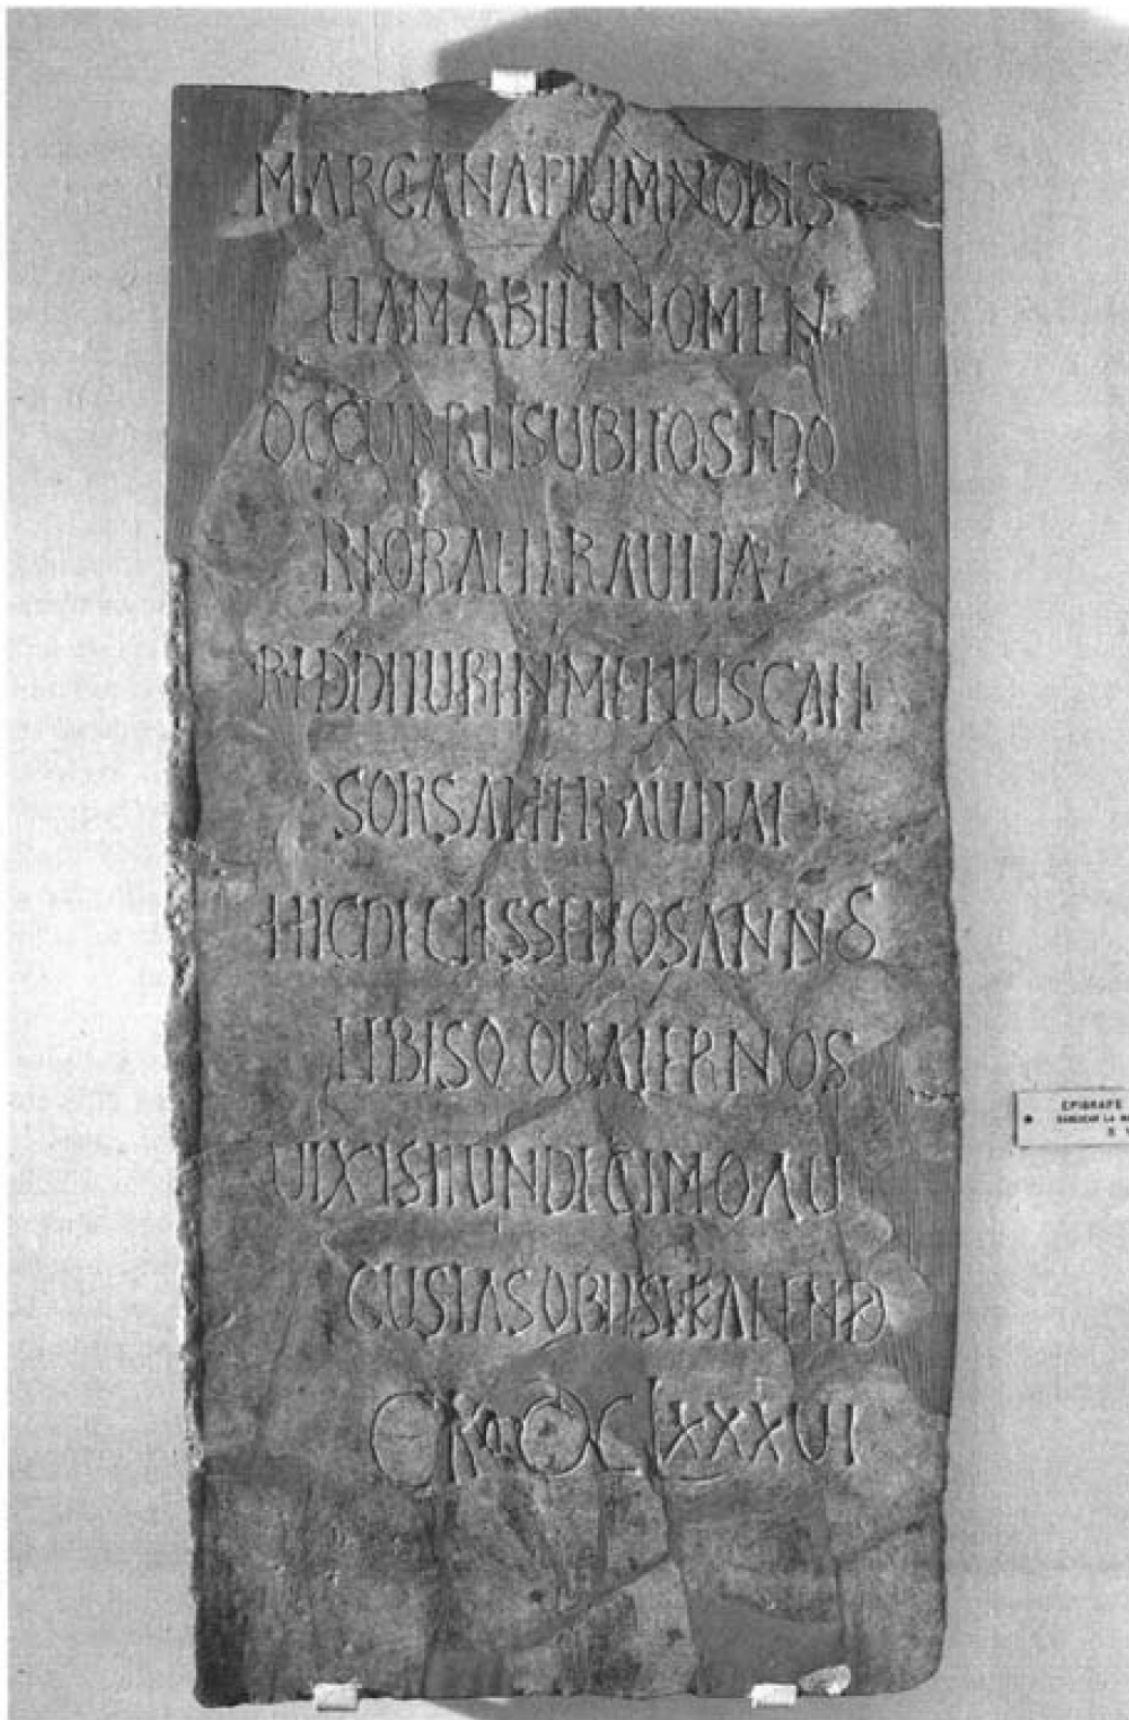 MARCIANAPIUMNOBIS
ETAMABILENOMEN
OCCUBRETSUBITOSEDO
REORALTERAUITA
REDDITURINMELIUSCAELI
SORSALTERAUITAE
HICDECIESSENOSANNOS
ETBISQ QUATERNOS
UIXISTIUNDECIMOAU
GUSTASOBISTIKALEND
LXXXUI
EPIGRAFE